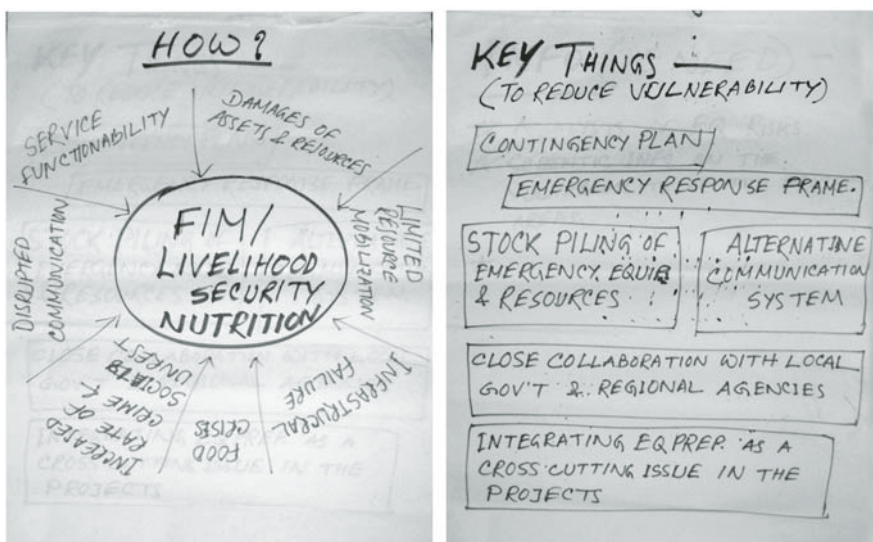 HOW?
SERVICE
FUNCTIONABILITY
DAMAGES OF
ASSETS & RESOURCES
LIMITED
RESOURCE
MOBILIZATION
INFRASTRUCRAL
FAILURE
FOOD
CRISES
INCREASED
RATE OF
CRIME &
SOCIETY
UNREST
DISRUPTED
COMMUNICATION
FIM/
LIVELIHOOD
SECURITY
NUTRITION
KEY THINGS —
(TO REDUCE VULNERABILITY)
CONTINGENCY PLAN
EMERGENCY RESPONSE FRAME.
STOCK PILING OF
EMERGENCY EQUIP
& RESOURCES
ALTERNATINE
COMMUNICATION
SYSTEM
CLOSE COLLABORATION WITH LOCAL
GOV'T & REGIONAL AGENCIES
INTEGRATING EQ PREP. AS A
CROSS CUTTING ISSUE IN THE
PROJECTS